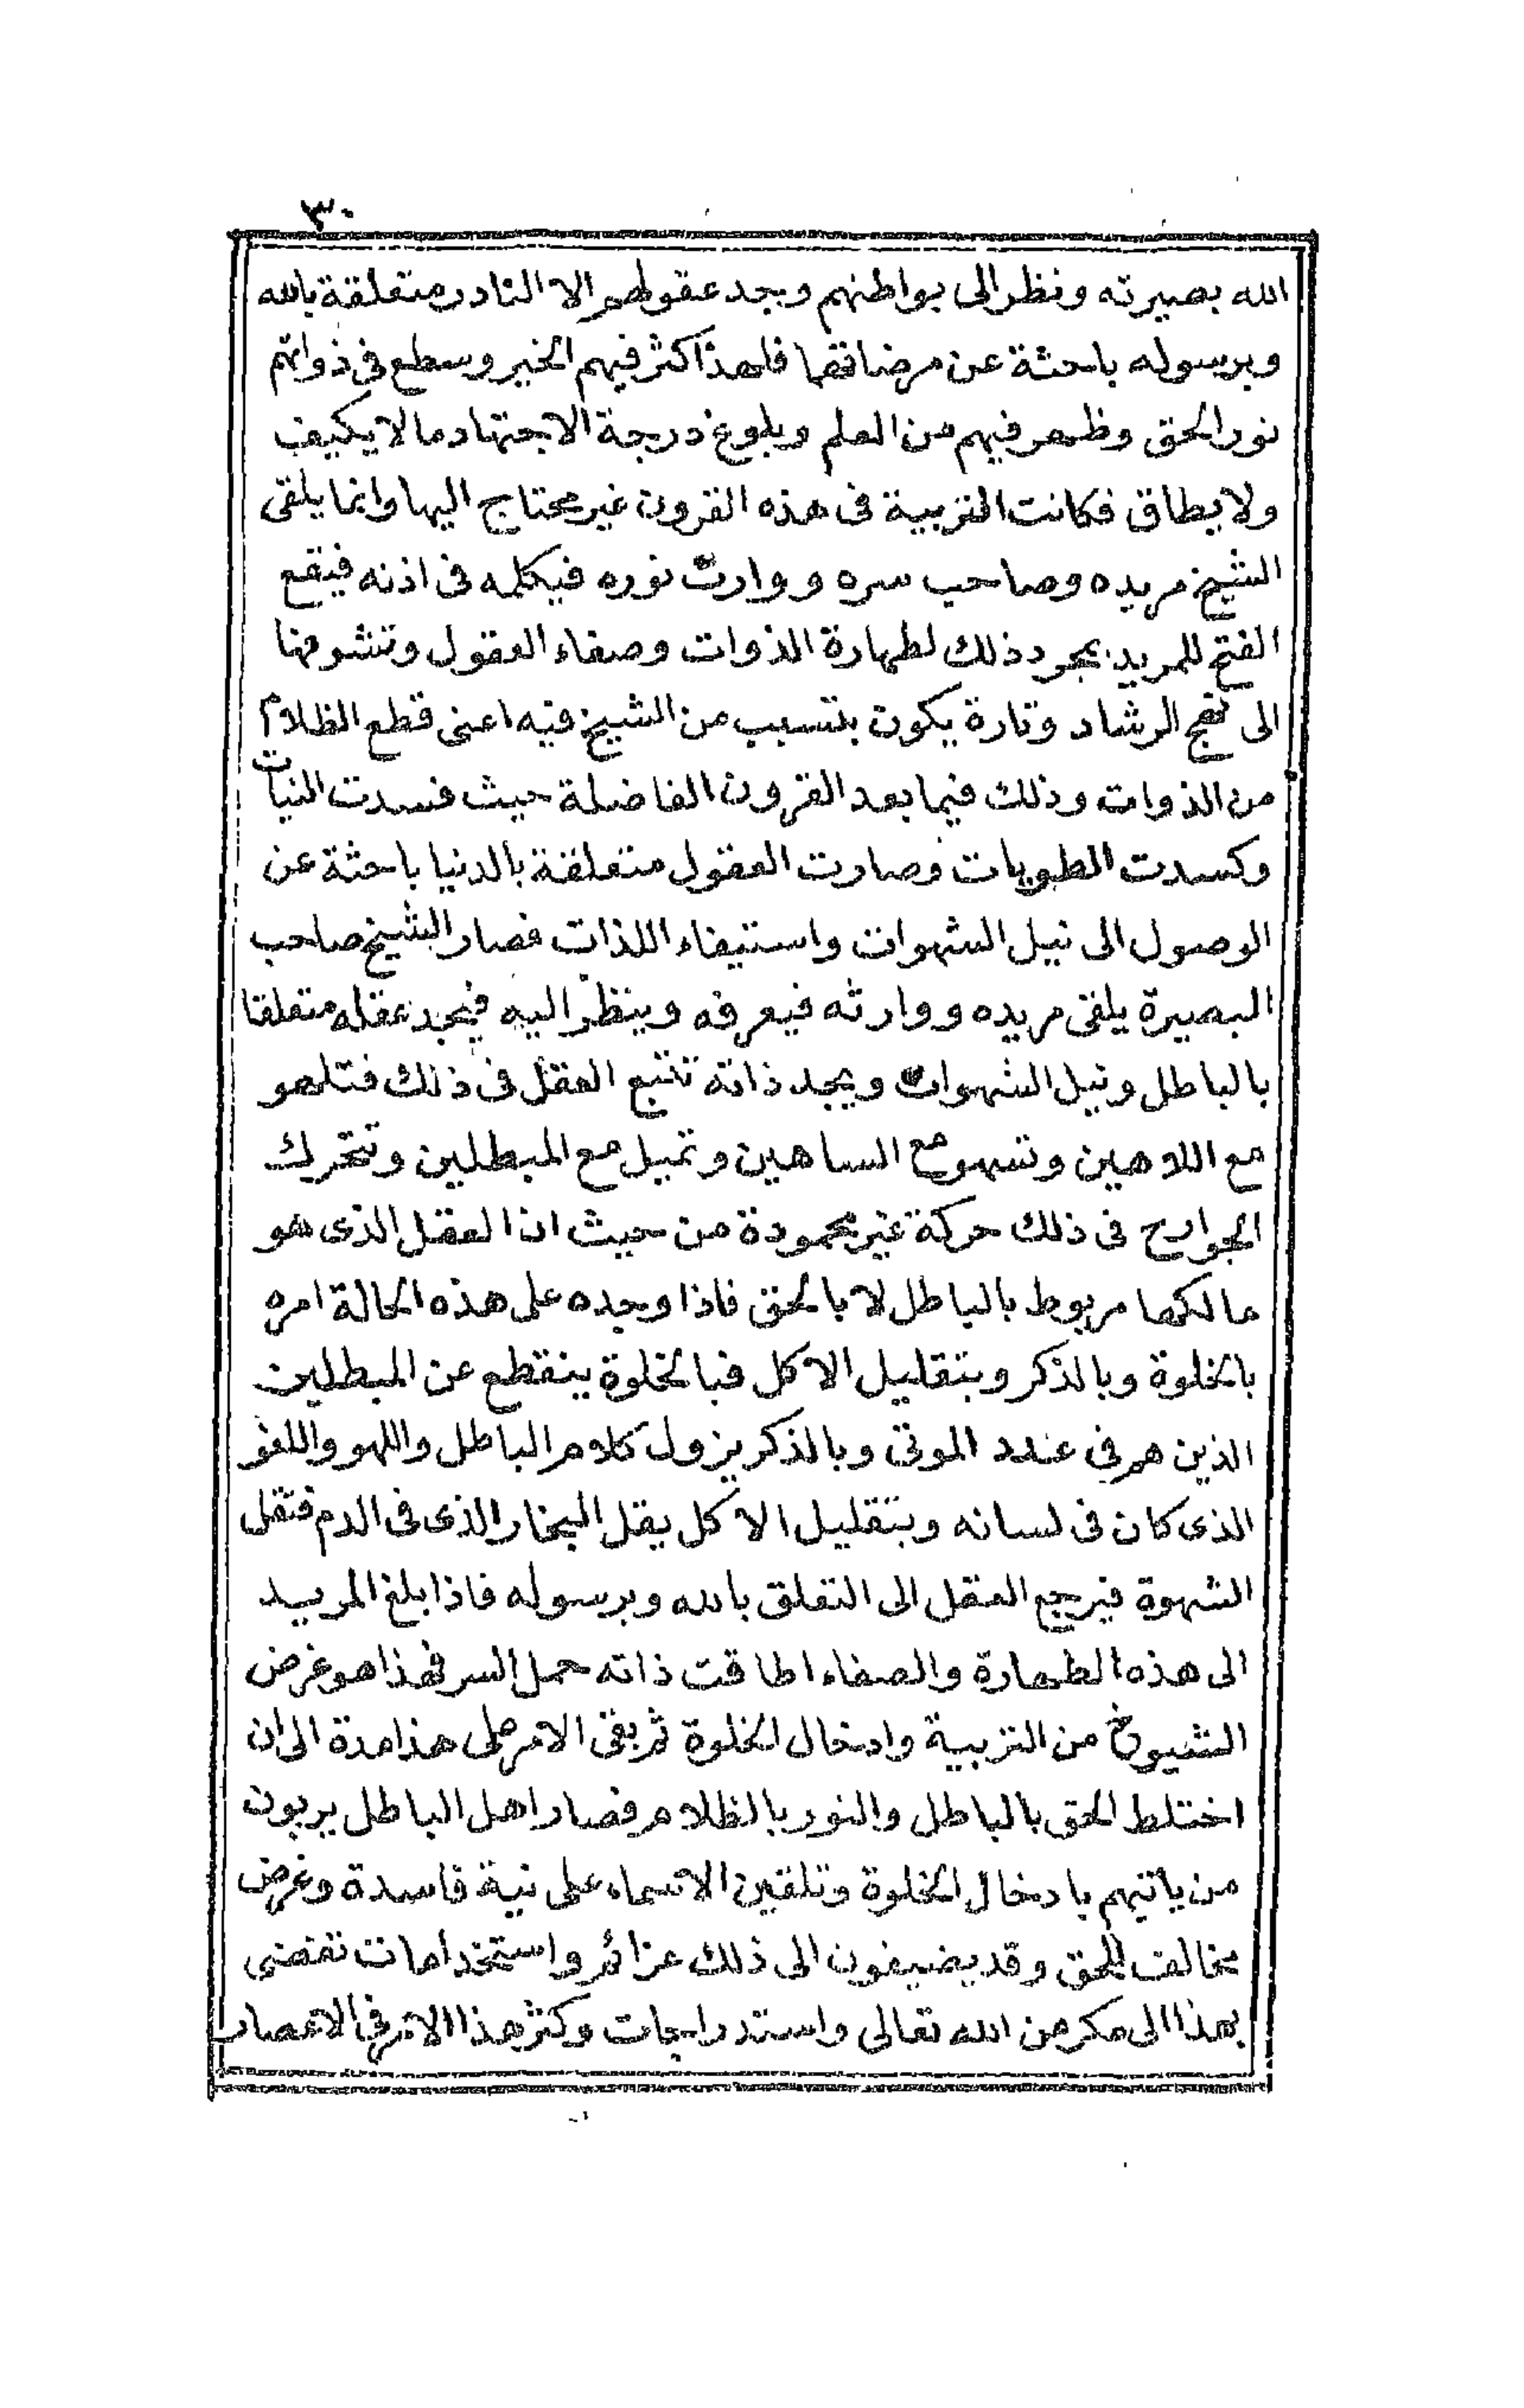 ٣٠
الله بصيرته ونظر الى بواطنهم وجد عقولهم الا النادر متعلقة بالله
وبرسوله باحثة عن مرضاتهما فلهذا كثر فيهم الخير وسطع فى ذواتهم
نور الحق وظهر فيهم من العلم وبلوغ درجة الاجتهاد ما لا يكيف
ولا يطاق فكانت التربية فى هذه القرون غير محتاج اليها وانما يلقى
الشيخ مريده وصاحب سره ووارث نوره فيكلمه فى اذنه فيقع
الفتح للمريد بمجرد ذلك لطهارة الذوات وصفاء العقول وتشوفها
الى نهج الرشاد وتارة يكون بتسبب من الشيخ فيه اعنى قطع الظلام
من الذوات وذلك فيما بعد القرون الفاضلة حيث فسدت النيات
وكسدت الطويات وصارت العقول متعلقة بالدنيا باحثة عن
الوصول الى نيل الشهوات واستيفاء اللذات فصار الشيخ صاحب
البصيرة يلقى مريده ووارثه فيعرفه وينظر اليه فيجد عقله متعلقا
بالباطل ونيل الشهوات ويجد ذاته تتبع العقل فى ذلك فتلهو
مع اللاهين وتسهو مع الساهين وتميل مع المبطلين وتتحرك
الجوارح فى ذلك حركة غير محمودة من حيث ان العقل الذى هو
مالكها مربوط بالباطل لا بالحق فاذا وجده على هذه الحالة امره
بالخلوة وبالذكر وبتقليل الاكل فبالخلوة ينقطع عن المبطلين
الذين هم فى عدد الموتى وبالذكر يزول كلام الباطل واللهو واللغو
الذى كان فى لسانه وبتقليل الاكل يقل البخار الذى فى الدم فتقل
الشهوة فيرجع العقل الى التعلق بالله وبرسوله فاذا بلغ المريد
الى هذه الطهارة والصفاء اطاقت ذاته حمل السر فهذا هو غرض
الشيوخ من التربية وادخال الخلوة ثم بقى الامر على هذا مدة الى ان
اختلط الحق بالباطل والنور بالظلام فصار اهل الباطل يربون
من ياتيهم بادخال الخلوة وتلقين الاسماء على نية فاسدة وغرض
مخالف للحق وقد يضيفون الى ذلك عزائم واستخدامات تفضى
بهذا الى مكر من الله تعالى واستدراجات وكثر هذا الامر فى الاعصار